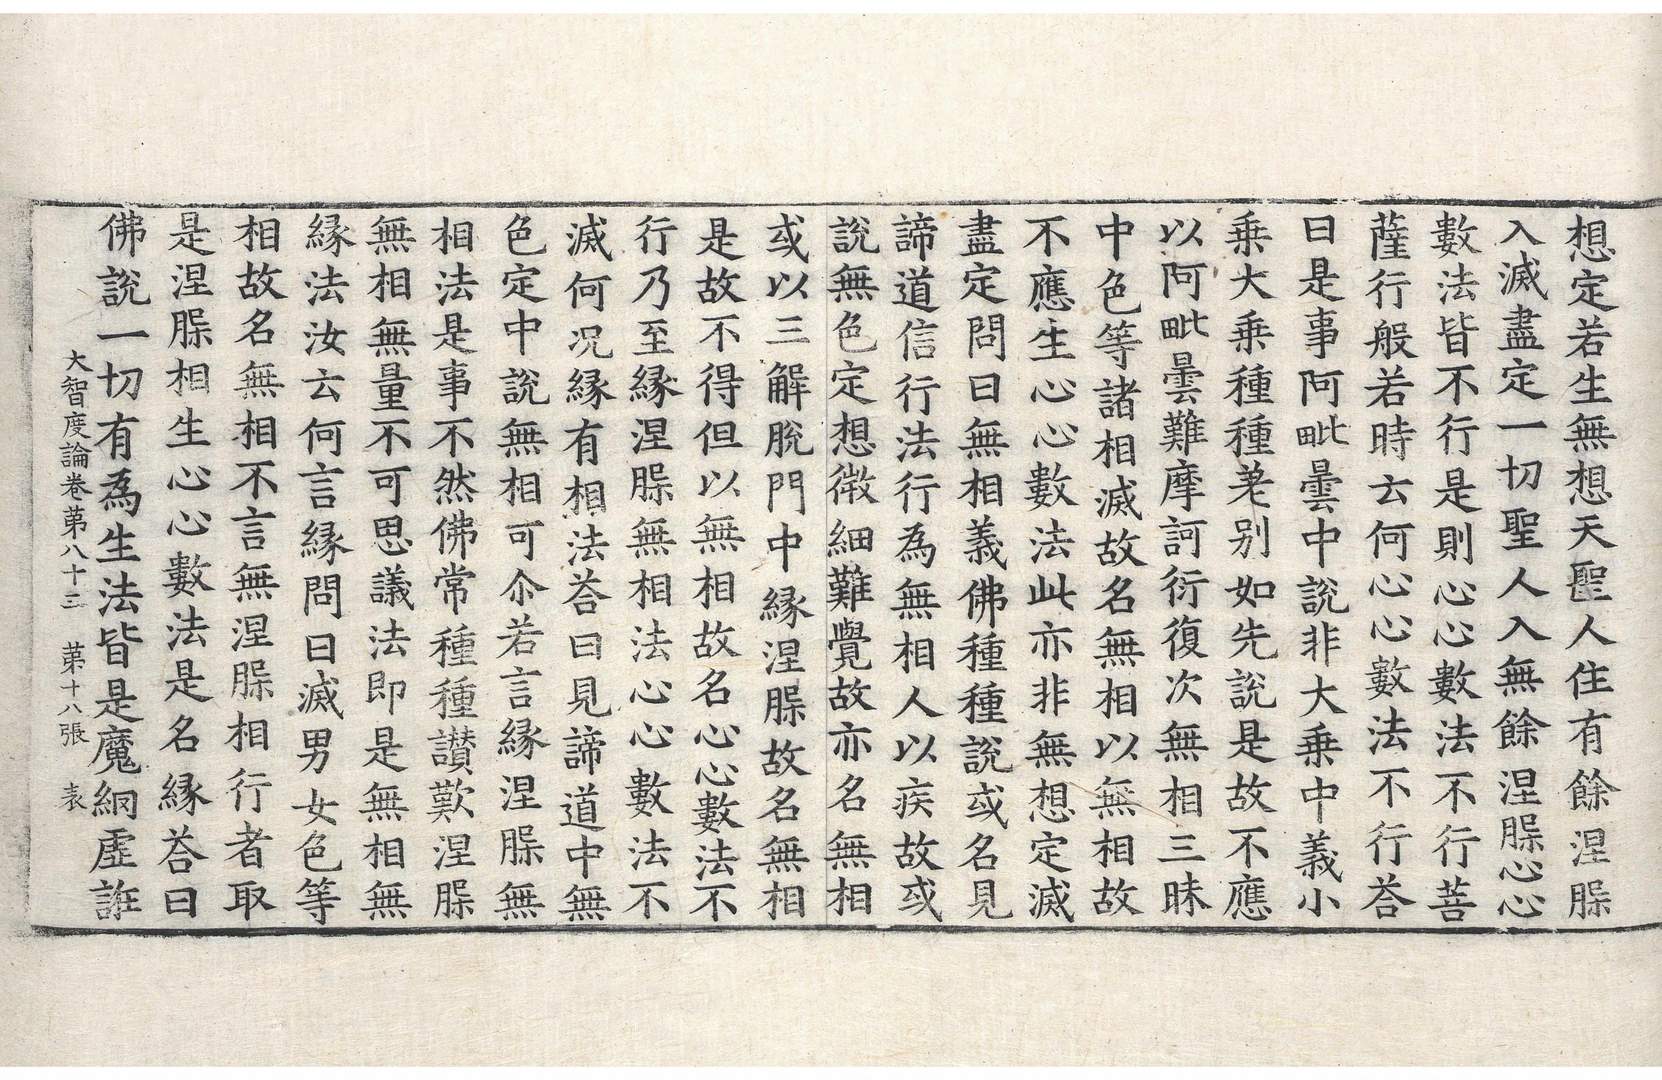 想定若生無想天聖人住有餘涅㬳
入滅盡定一切聖人入無餘涅㬳心心
數法皆不行是則心心數法不行菩
薩行般若時云何心心數法不行荅
曰是事阿毗曇中說非大乗中義小
乗大乗種種差别如先說是故不應
以阿毗曇難摩訶衍復次無相三昧
中色等諸相滅故名無相以無相故
不應生心心數法此亦非無想定滅
盡定問曰無相義佛種種說或名見
諦道信行法行為無相人以疾故或
說無色定想微細難覺故亦名無相
或以三解脫門中緣涅㬳故名無相
是故不得但以無相故名心心數法不
行乃至緣涅㬳無相法心心數法不
滅何况緣有相法荅曰見諦道中無
色定中說無相可尒若言緣涅㬳無
相法是事不然佛常種種讃歎涅㬳
無相無量不可思議法即是無相無
緣法汝云何言緣問曰滅男女色等
相故名無相不言無涅㬳相行者取
是涅㬳相生心心數法是名緣荅曰
佛說一切有為生法皆是魔網虛誑
大智度論卷苐八十三 苐十八張 表